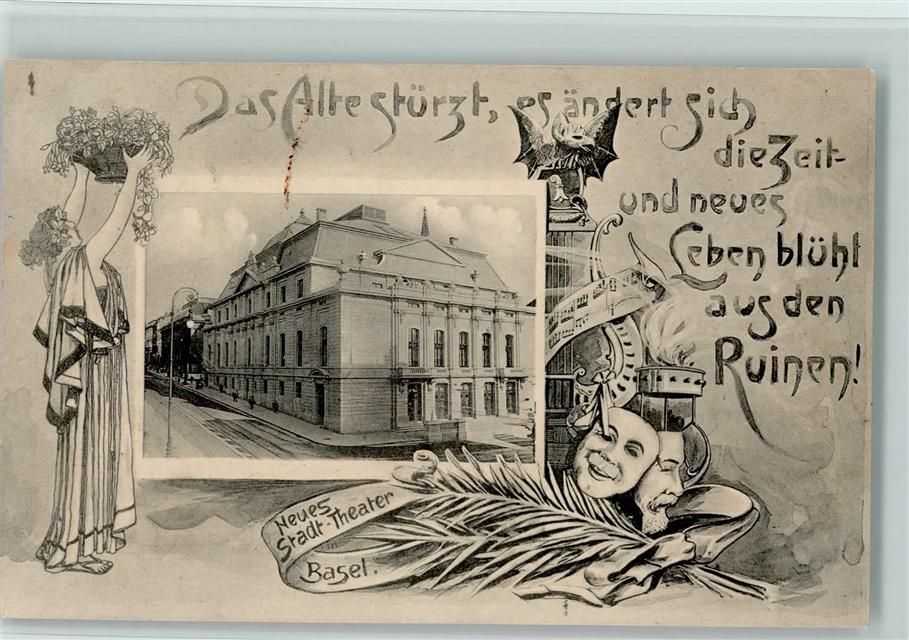 Das Alte stürzt, es ändert sich
die Zeit
und neues
Leben blüht
aus den
Ruinen!
Neues
Stadt-Theater
in
Basel.